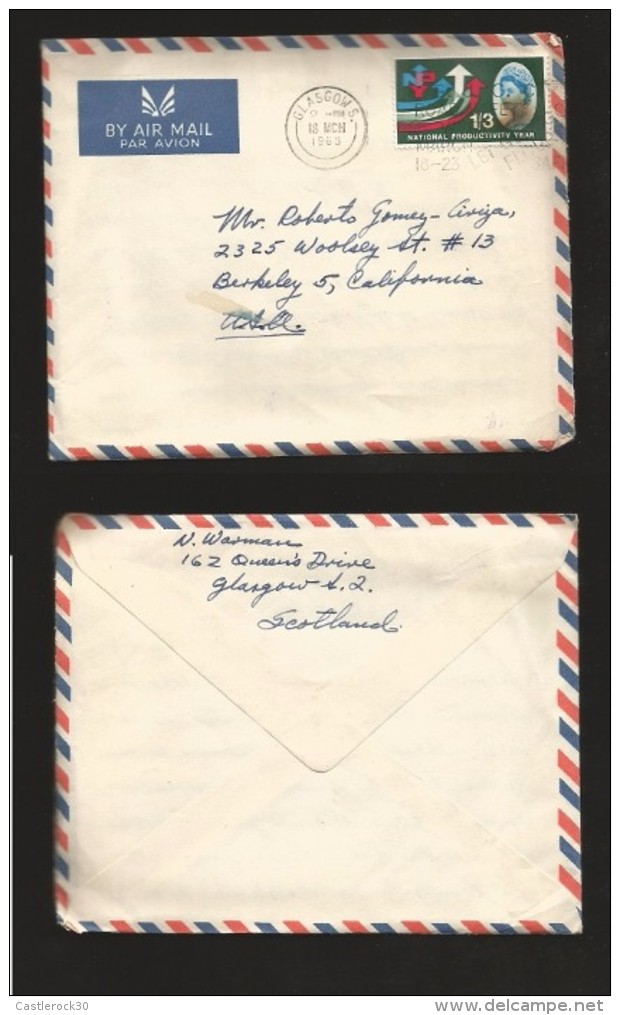 BY AIR MAIL
PAR AVION
GLASGOW S.
18 MCH
1963
NP
1/3
NATIONAL PRODUCTIVITY YEAR
16-23
Mr. Roberto Gomez-Ariza,
2325 Woolsey St. # 13
Berkeley 5, California
U.S.A.
N. Warman
162 Queen's Drive
Glasgow S.2.
Scotland.
Castlerock30
www.delcampe.net